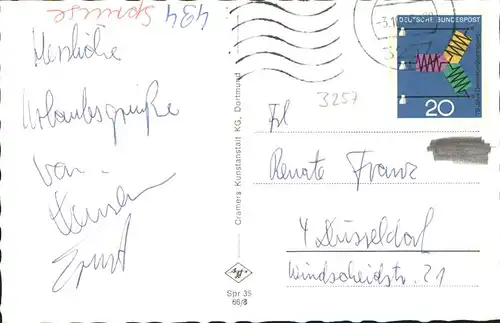 494 Spruse
Herzliche
Urlaubsgrüße
von
Ernst
Cramers Kunstanstalt KG, Dortmund
Spr 35
66/8
DEUTSCHE BUNDESPOST
20
3257
Frl
Renate Franz
4 Düsseldorf
Windscheidstr. 21